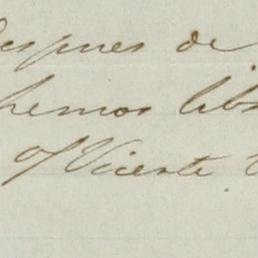 despues de
hemos lib
of Vicente